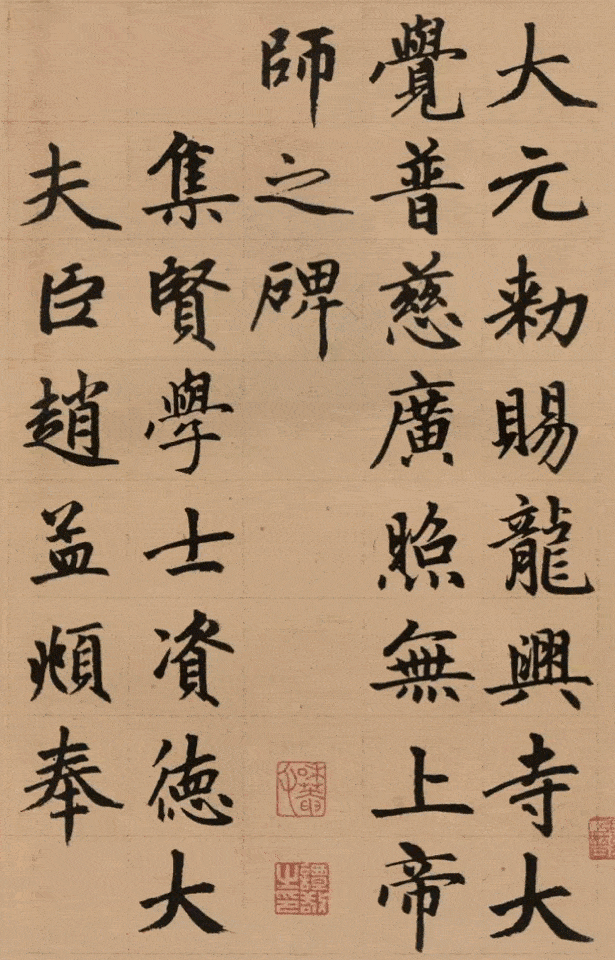 大元勑賜龍興寺大
覺普慈廣照無上帝
師之碑
集賢學士資徳大
夫臣趙孟頫奉
譚敬之印